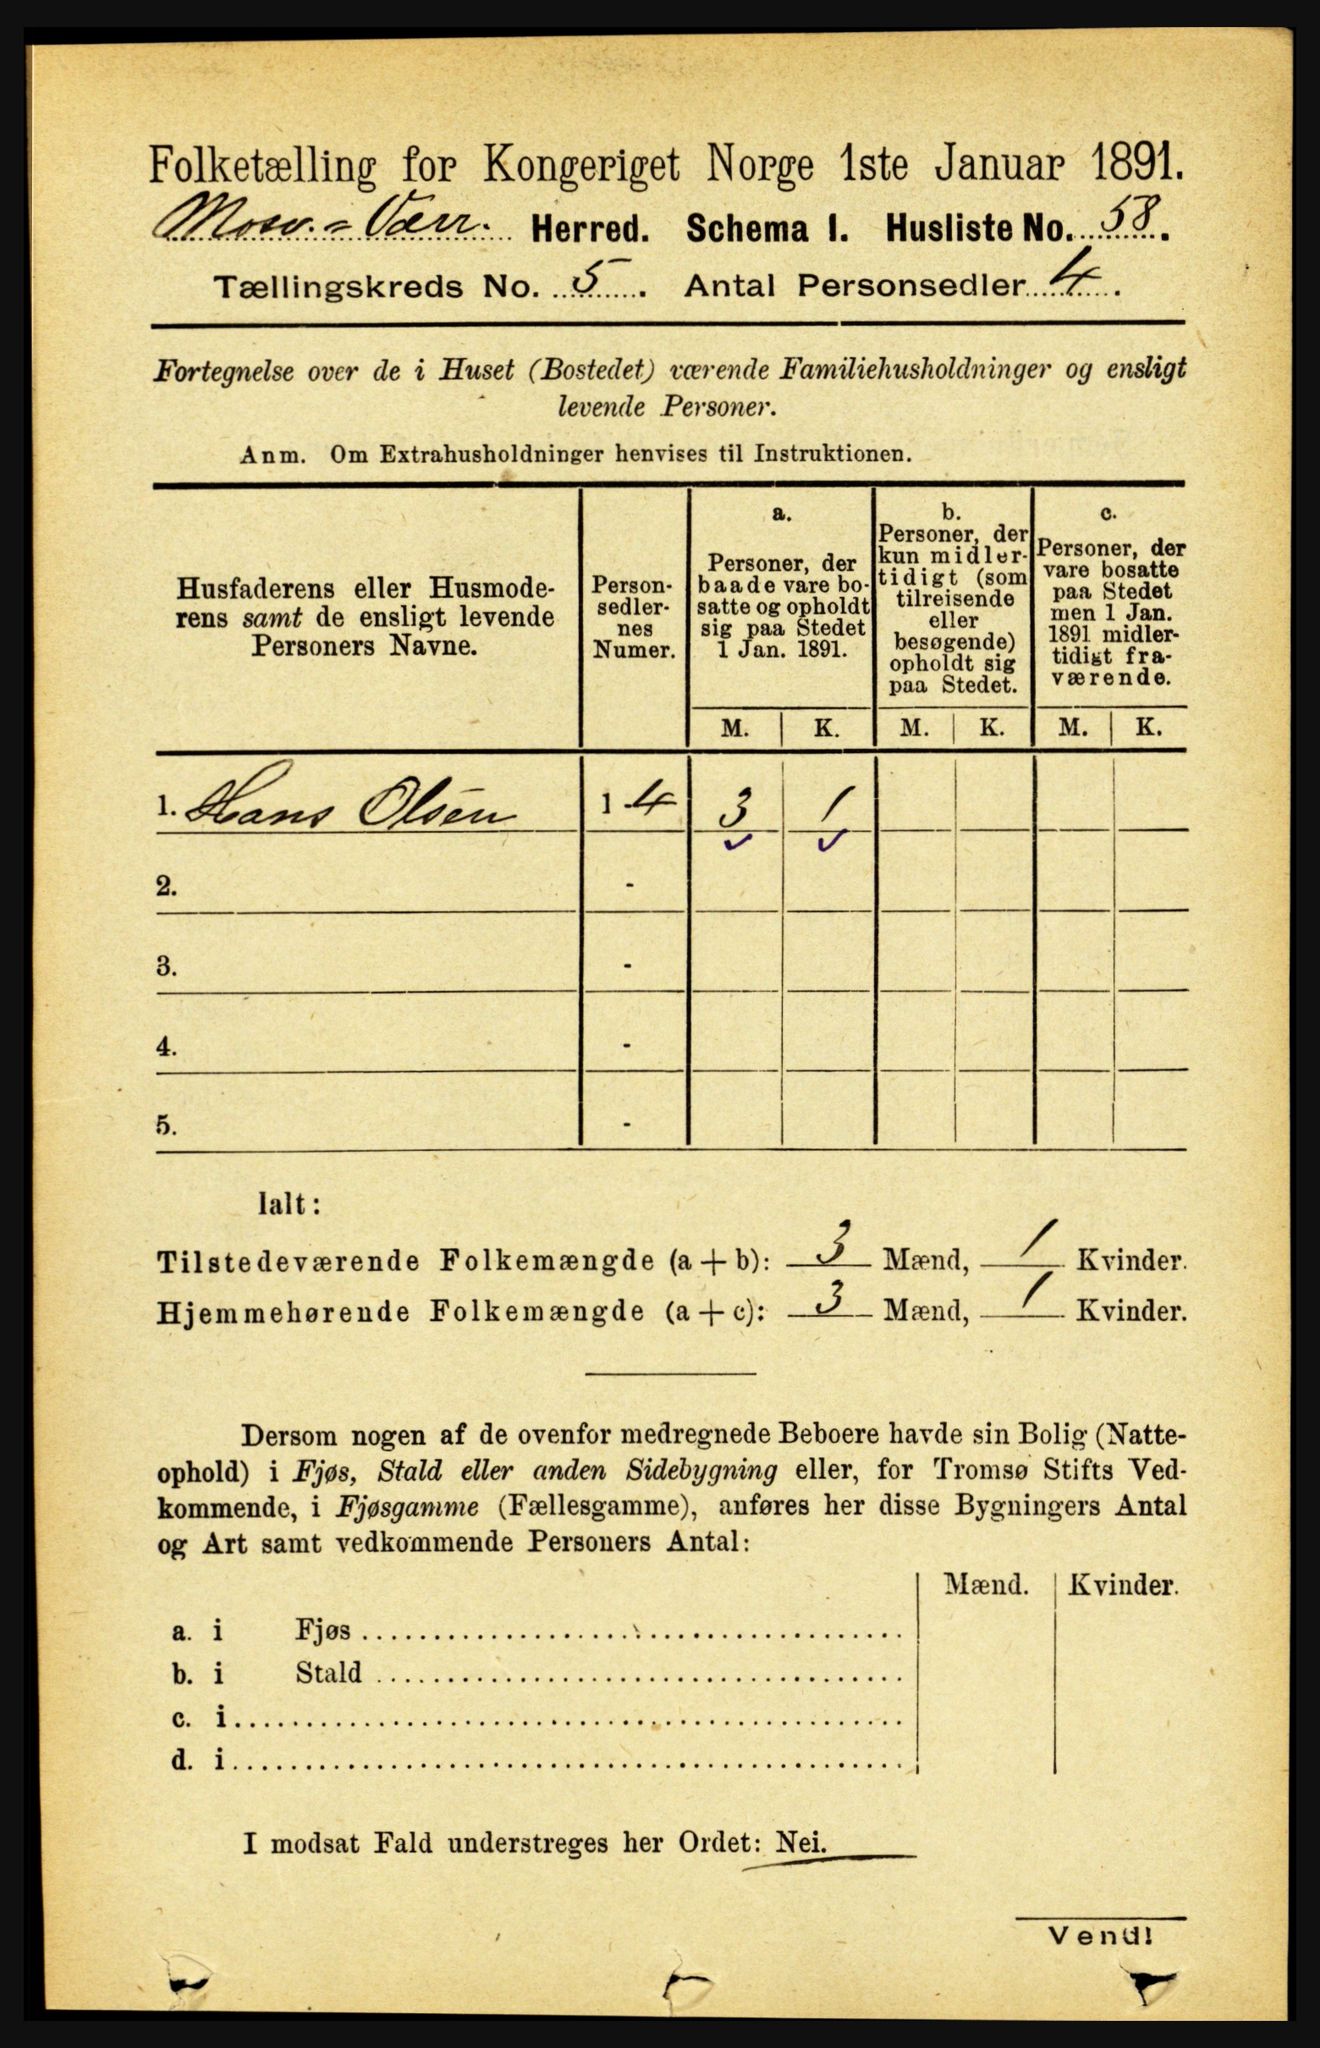 Folketælling for Kongeriget Norge 1ste Januar 1891.
Mosv. = Værr. Herred. Schema I. Husliste No. 58.
Tællingskreds No. 5. Antal Personsedler 4.
Fortegnelse over de i Huset (Bostedet) værende Familiehusholdninger og ensligt
levende Personer.
Anm. Om Extrahusholdninger henvises til Instruktionen.
Husfaderens eller Husmode-
rens samt de ensligt levende
Personers Navne.
Person-
sedler-
nes
Numer.
a.
Personer, der
baade vare bo-
satte og opholdt
sig paa Stedet
1 Jan. 1891.
b.
Personer, der
kun midler-
tidigt (som
tilreisende
eller
besøgende)
opholdt sig
paa Stedet.
c.
Personer, der
vare bosatte
paa Stedet
men 1 Jan.
1891 midler-
tidigt fra-
værende.
M. K. M. K. M. K.
1. Hans Olsen 1 - 4 3 1
2. -
3. -
4. -
5. -
Ialt:
Tilstedeværende Folkemængde (a + b): 3 Mænd, 1 Kvinder.
Hjemmehørende Folkemængde (a + c): 3 Mænd, 1 Kvinder.
Dersom nogen af de ovenfor medregnede Beboere havde sin Bolig (Natte-
ophold) i Fjøs, Stald eller anden Sidebygning eller, for Tromsø Stifts Ved-
kommende, i Fjøsgamme (Fællesgamme), anføres her disse Bygningers Antal
og Art samt vedkommende Personers Antal:
Mænd. Kvinder.
a. i Fjøs
b. i Stald
c. i
d. i
I modsat Fald understreges her Ordet: Nei.
Vend!